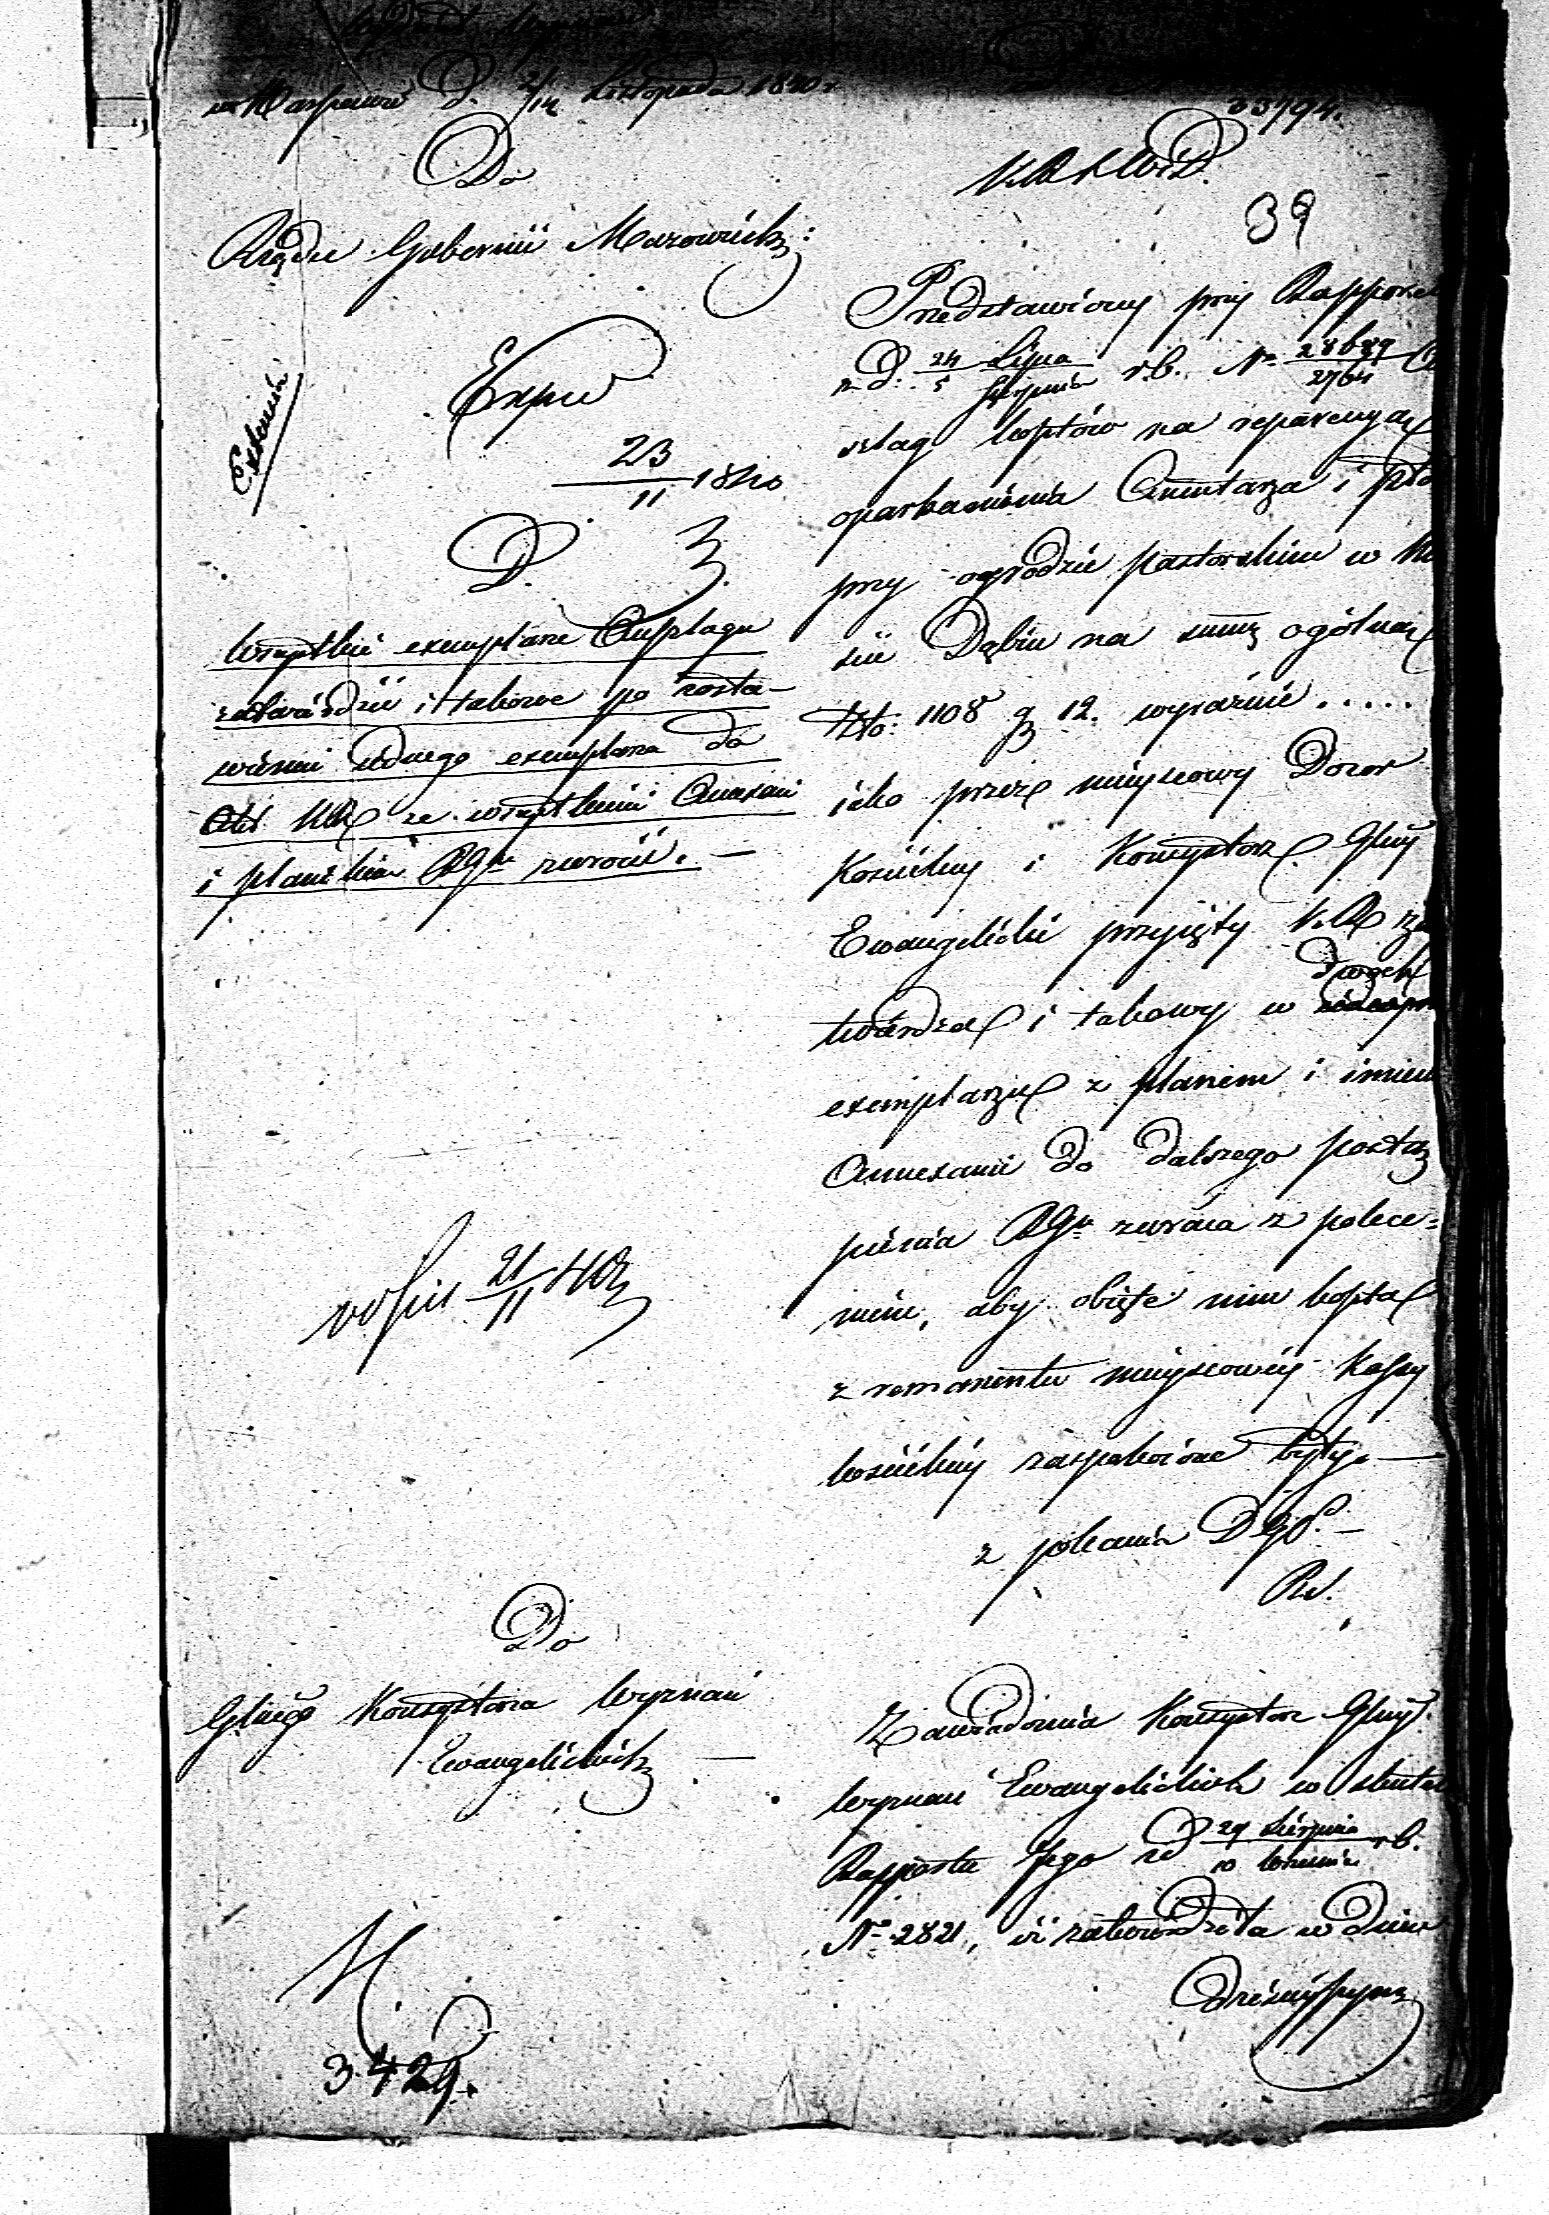 w Warszawie D. 2/14 Listopada 1840 r
33794.
Do
Rządu Gubernii Mazowieckiej:
Exped
23/11 1840
D.
wszystkie exemplarze Anszlagu
zatwierdzić i takowe po zosta-
wieniu jednego exemplarza do
Akt KR ze wszystkimi Anexami
i planikiem RGu zwrócić. —
vidi 21/11 40
K.R.S.W.i D.
39
Przedstawiony przy Rapporcie
z D: 24 Lipca / 5 Sierpnia r.b. No 28689/2764
szlag kosztów na reparacyą
oparkanienia Cmentarza i
przy ogrodzie pastorskim w
ście Dąbiu na summę ogólną
Złło: 1108 g 12. wyraźnie .....
jako przez miejscowy Dozór
Kościelny i Konsystorz Głny
Ewangelicki przyjęty K.R. za
twierdza i takowy w
dwóch
exemplarzu z planem i innemi
Annexami do dalszego postą
pienia RGu zwraca z polece=
niem, aby objęte nim koszta
z remanentu miejscowej Kassy
kościelnej zaspokojone były. —
z polecenia D G P. —
Do
Głnego Konsystorza Wyznań
Ewangelickich —
Zawiadomia Konsystorz Głny
Wyznań Ewangelickich w skutek
Rapportu Jego z d 29 Sierpnia / 10 Września r.b.
No 2821, iż zatwierdziła w Dniu
Dzisiejszym
3429.